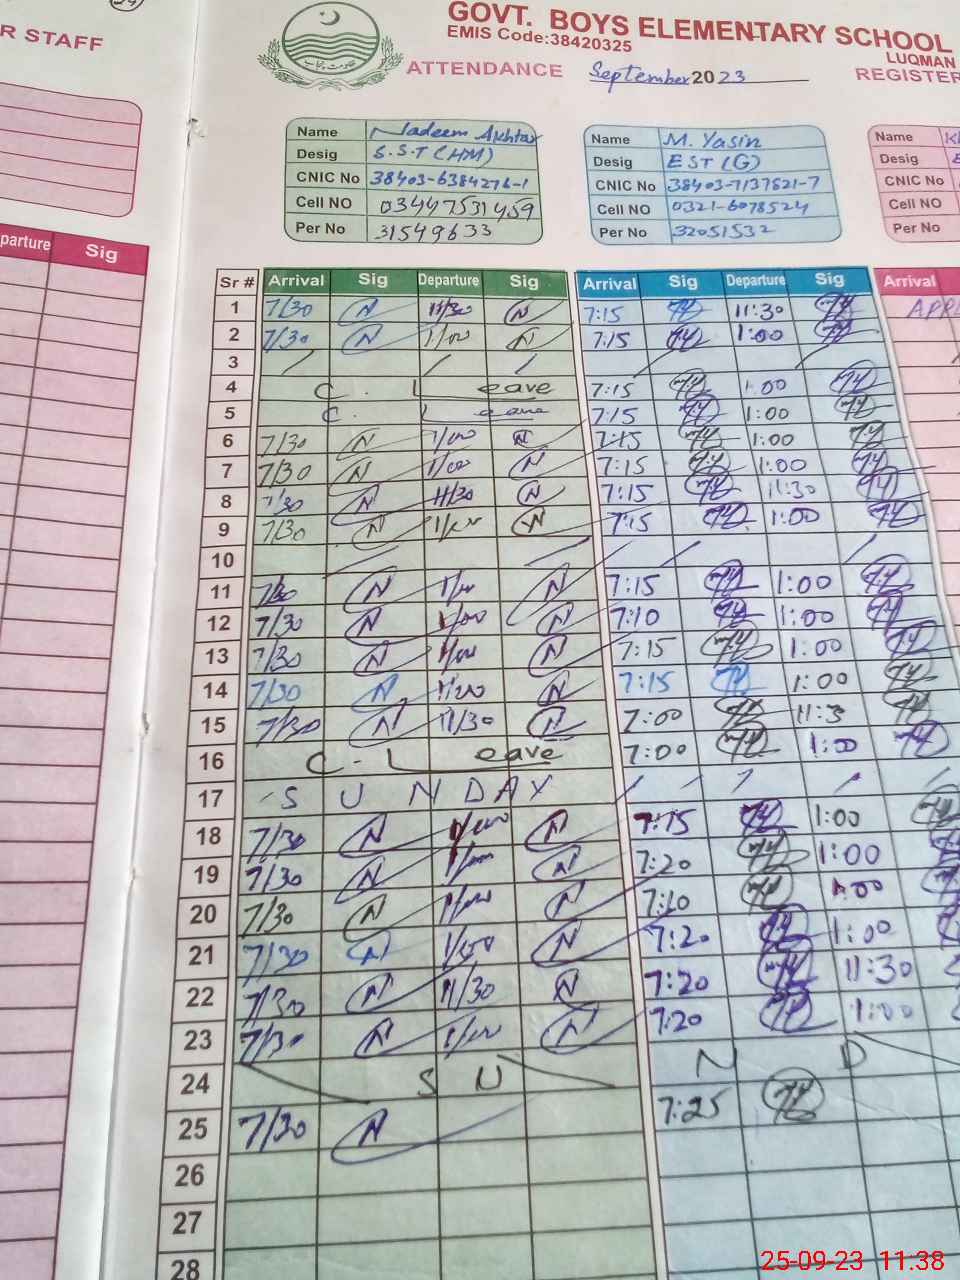 R STAFF
GOVT. BOYS ELEMENTARY SCHOOL
EMIS Code:38420325
LUQMAN
ATTENDANCE September 2023 REGISTER
Name Nadeem Akhtar
Desig S.S.T (HM)
CNIC No 38403-6384276-1
Cell NO 03447531459
Per No 31549633
Name M. Yasin
Desig EST (G)
CNIC No 38403-7137821-7
Cell NO 0321-6078524
Per No 32051532
Name
Desig
CNIC No
Cell NO
Per No
parture Sig
Sr # Arrival Sig Departure Sig Arrival Sig Departure Sig Arrival
1 7/30 N 11/30 N 7:15 11:30
2 7/30 N 1/00 N 7:15 1:00
3
4 C. Leave 7:15 1:00
5 C. Leave 7:15 1:00
6 7/30 N 1/00 N 7:15 1:00
7 7/30 N 1/00 N 7:15 1:00
8 7/30 N 11/30 N 7:15 11:30
9 7/30 N 1/00 N 7:15 1:00
10
11 7/30 N 1/00 N 7:15 1:00
12 7/30 N 1/00 N 7:10 1:00
13 7/30 N 1/00 N 7:15 1:00
14 7/30 N 1/00 N 7:15 1:00
15 7/30 N 11/30 N 7:00 11:3
16 C. Leave 7:00 1:00
17 SUNDAY
18 7/30 N 1/00 N 7:15 1:00
19 7/30 N 1/00 N 7:20 1:00
20 7/30 N 1/00 N 7:10 1:00
21 7/30 N 1/00 N 7:20 1:00
22 7/30 N 11/30 N 7:20 11:30
23 7/30 N 1/00 N 7:20 1:00
24 S U N D
25 7/30 N 7:25
26
27
28
25-09-23 11:38